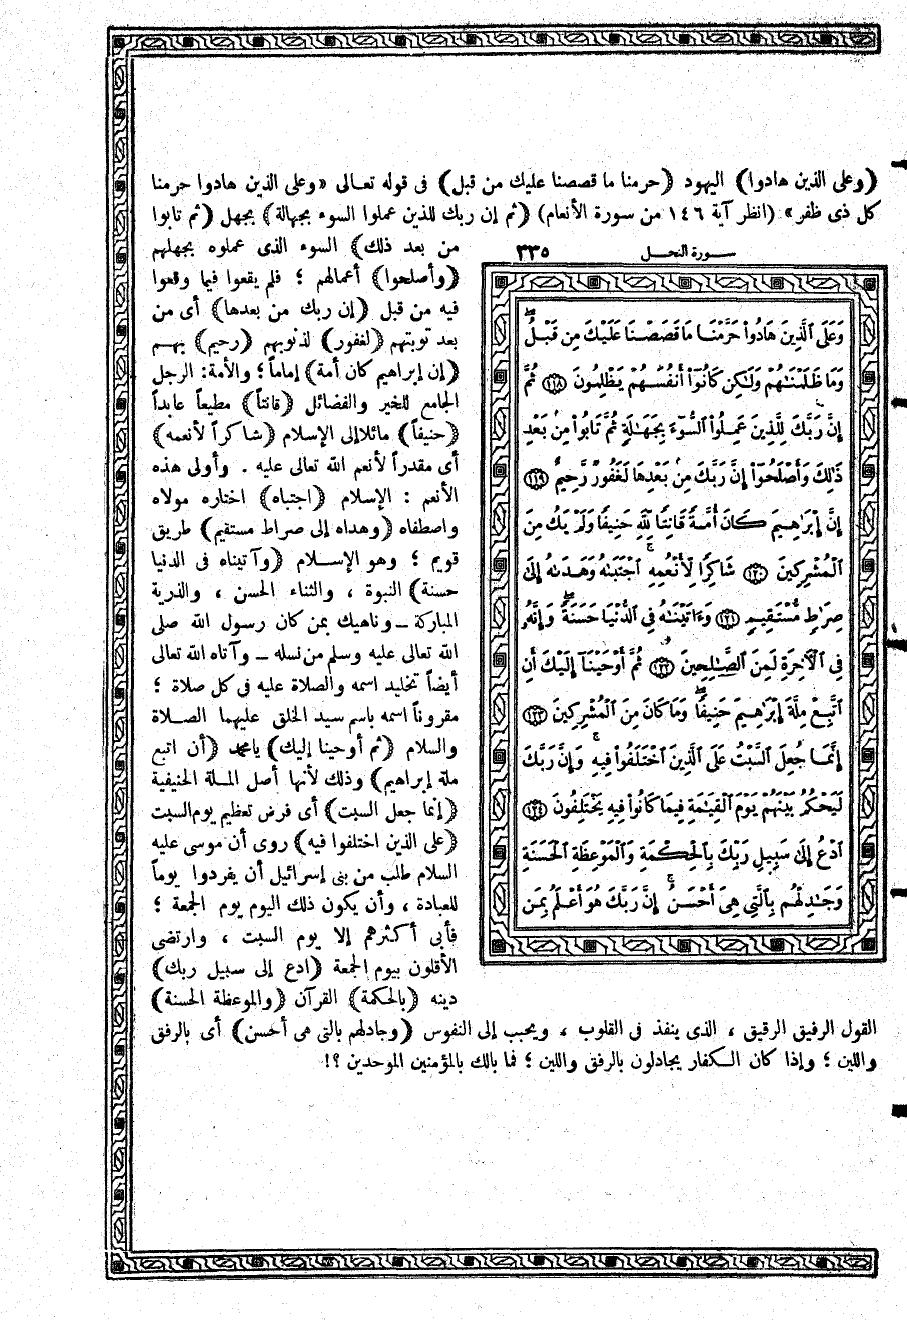 (وعلى الذين هادوا) اليهود (حرمنا ما قصصنا عليك من قبل) فى قوله تعالى «وعلى الذين هادوا حرمنا
كل ذى ظفر» (انظر آية ١٤٦ من سورة الأنعام) (ثم إن ربك للذين عملوا السوء بجهالة) بجهل (ثم تابوا
من بعد ذلك) السوء الذى عملوه بجهلهم
(وأصلحوا) أعمالهم ؛ فلم يقعوا فيما وقعوا
فيه من قبل (إن ربك من بعدها) أى من
بعد توبتهم (لغفور) لذنوبهم (رحيم) بهم
(إن إبراهيم كان أمة) إماماً ؛ والأمة: الرجل
الجامع للخير والفضائل (قانتاً) مطيعاً عابداً
(حنيفاً) مائلا إلى الإسلام (شاكراً لأنعمه)
أى مقدراً لأنعم الله تعالى عليه . وأولى هذه
الأنعم : الإسلام (اجتباه) اختاره مولاه
واصطفاه (وهداه إلى صراط مستقيم) طريق
قويم ؛ وهو الإسلام (وآتيناه فى الدنيا
حسنة) النبوة ، والثناء الحسن ، والذرية
المباركة ــ وناهيك بمن كان رسول الله صلى
الله تعالى عليه وسلم من نسله ــ وآتاه الله تعالى
أيضاً تخليد اسمه والصلاة عليه فى كل صلاة ؛
مقروناً اسمه باسم سيد الخلق عليهما الصلاة
والسلام (ثم أوحينا إليك) يا محمد (أن اتبع
ملة إبراهيم) وذلك لأنها أصل الملة الحنيفية
(إنما جعل السبت) أى فرض تعظيم يوم السبت
(على الذين اختلفوا فيه) روى أن موسى عليه
السلام طلب من بنى إسرائيل أن يفردوا يوماً
للعبادة ، وأن يكون ذلك اليوم يوم الجمعة ؛
فأبى أكثرهم إلا يوم السبت ، وارتضى
الأقلون بيوم الجمعة (ادع إلى سبيل ربك)
دينه (بالحكمة) القرآن (والموعظة الحسنة)
القول الرفيق الرقيق ، الذى ينفذ فى القلوب ، ويحبب إلى النفوس (وجادلهم بالتى هى أحسن) أى بالرفق
واللين ؛ وإذا كان الكفار يجادلون بالرفق واللين ؛ فما بالك بالمؤمنين الموحدين ؟!
سورة النحل ٣٣٥
وَعَلَى ٱلَّذِينَ هَادُوا۟ حَرَّمْنَا مَا قَصَصْنَا عَلَيْكَ مِن قَبْلُ ۖ
وَمَا ظَلَمْنَـٰهُمْ وَلَـٰكِن كَانُوٓا۟ أَنفُسَهُمْ يَظْلِمُونَ ١١٨ ثُمَّ
إِنَّ رَبَّكَ لِلَّذِينَ عَمِلُوا۟ ٱلسُّوٓءَ بِجَهَـٰلَةٍ ثُمَّ تَابُوا۟ مِنۢ بَعْدِ
ذَٰلِكَ وَأَصْلَحُوٓا۟ إِنَّ رَبَّكَ مِنۢ بَعْدِهَا لَغَفُورٌ رَّحِيمٌ ١١٩
إِنَّ إِبْرَٰهِيمَ كَانَ أُمَّةً قَانِتًا لِّلَّهِ حَنِيفًا وَلَمْ يَكُ مِنَ
ٱلْمُشْرِكِينَ ١٢٠ شَاكِرًا لِّأَنْعُمِهِ ۚ ٱجْتَبَىٰهُ وَهَدَىٰهُ إِلَىٰ
صِرَٰطٍ مُّسْتَقِيمٍ ١٢١ وَءَاتَيْنَـٰهُ فِى ٱلدُّنْيَا حَسَنَةً ۖ وَإِنَّهُۥ
فِى ٱلْـَٔاخِرَةِ لَمِنَ ٱلصَّـٰلِحِينَ ١٢٢ ثُمَّ أَوْحَيْنَآ إِلَيْكَ أَنِ
ٱتَّبِعْ مِلَّةَ إِبْرَٰهِيمَ حَنِيفًا ۖ وَمَا كَانَ مِنَ ٱلْمُشْرِكِينَ ١٢٣
إِنَّمَا جُعِلَ ٱلسَّبْتُ عَلَى ٱلَّذِينَ ٱخْتَلَفُوا۟ فِيهِ ۚ وَإِنَّ رَبَّكَ
لَيَحْكُمُ بَيْنَهُمْ يَوْمَ ٱلْقِيَـٰمَةِ فِيمَا كَانُوا۟ فِيهِ يَخْتَلِفُونَ ١٢٤
ٱدْعُ إِلَىٰ سَبِيلِ رَبِّكَ بِٱلْحِكْمَةِ وَٱلْمَوْعِظَةِ ٱلْحَسَنَةِ
وَجَـٰدِلْهُم بِٱلَّتِى هِىَ أَحْسَنُ ۚ إِنَّ رَبَّكَ هُوَ أَعْلَمُ بِمَن